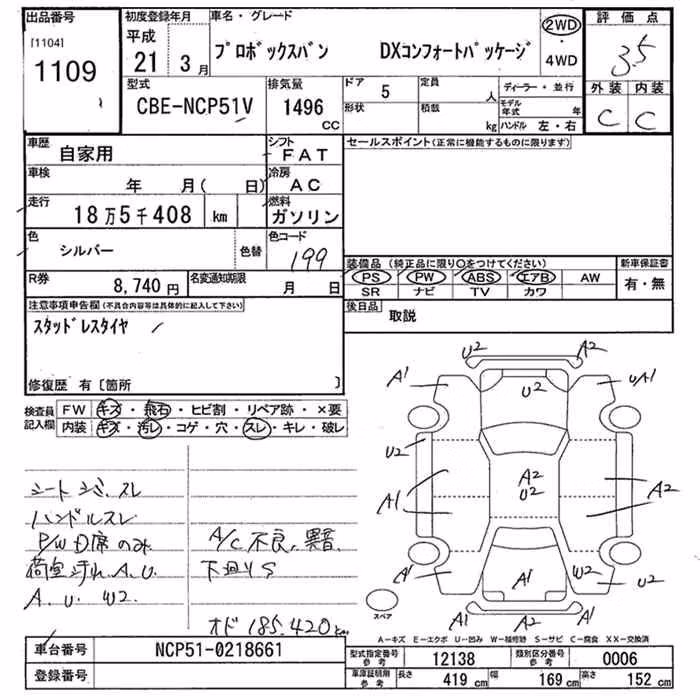 出品番号
[1104]
1109
初度登録年月
平成
21 3月
車名・グレード
プロボックスバン DXコンフォートパッケージ
2WD
・
4WD
評価点
3.5
外装 内装
C C
型式
CBE-NCP51V
排気量
1496
CC
ドア 5
形状
定員 人
積載 kg
ディーラー・並行
モデル年式 年
ハンドル 左・右
車歴 自家用
シフト FAT
車検 年 月( 日)
冷房 AC
走行 18万5千408 km
燃料 ガソリン
色 シルバー 色替
色コード 199
R券 8,740円
名変通知期限 月 日
セールスポイント(正常に機能するものに限ります)
装備品(純正品に限り○をつけてください)
PS PW ABS エアB AW
SR ナビ TV カワ
新車保証書
有・無
後日品 取説
注意事項申告欄(不具合内容等は具体的に記入して下さい)
スタッドレスタイヤ
修復歴 有〔箇所 〕
検査員記入欄
FW キズ・飛石・ヒビ割・リペア跡・×要
内装 キズ・汚レ・コゲ・穴・スレ・キレ・破レ
シートシミ、スレ
ハンドルスレ
P/W D席のみ
荷室汚れ A.U.
A. U. W2
A/C 不良、異音
下廻りS
オド 185,420
U2 A2
A1 U2 uA1
U2
A1 A2 U2 A2
A1 A1 W2 U2
A1 A2 A1
スペア
A−キズ E−エクボ U−凹み W−補修跡 S−サビ C−腐食 XX−交換済
車台番号 NCP51-0218661
登録番号
型式指定番号 参考 12138
類別区分番号 参考 0006
車庫証明用 参考 長さ 419 cm 幅 169 cm 高さ 152 cm